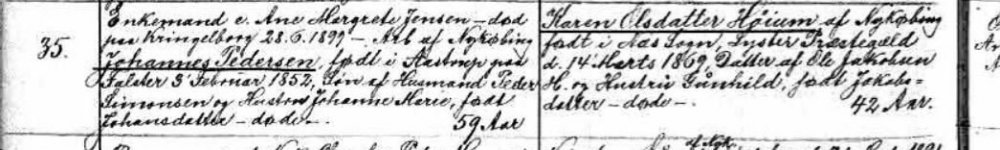 35.
Enkemand e. Ane Margrete Jensen – død
paa Kringelborg 28.6.1899 – Arb. af Nykøbing
Johannes Pedersen, født i Aastrup paa
Falster 3 Februar 1852, Søn af Husmand Peder
Simonsen og Hustru Johanne Marie, født
Johansdatter – døde –.
59 Aar
Karen Olsdatter Høium af Nykøbing
født i Næs Sogn, Lyster Præstegæld
d. 14 Marts 1869, Datter af Ole Jakobsen
H. og Hustru Gunhild, født Jakobs=
datter – døde –.
42 Aar.
af Nyk.